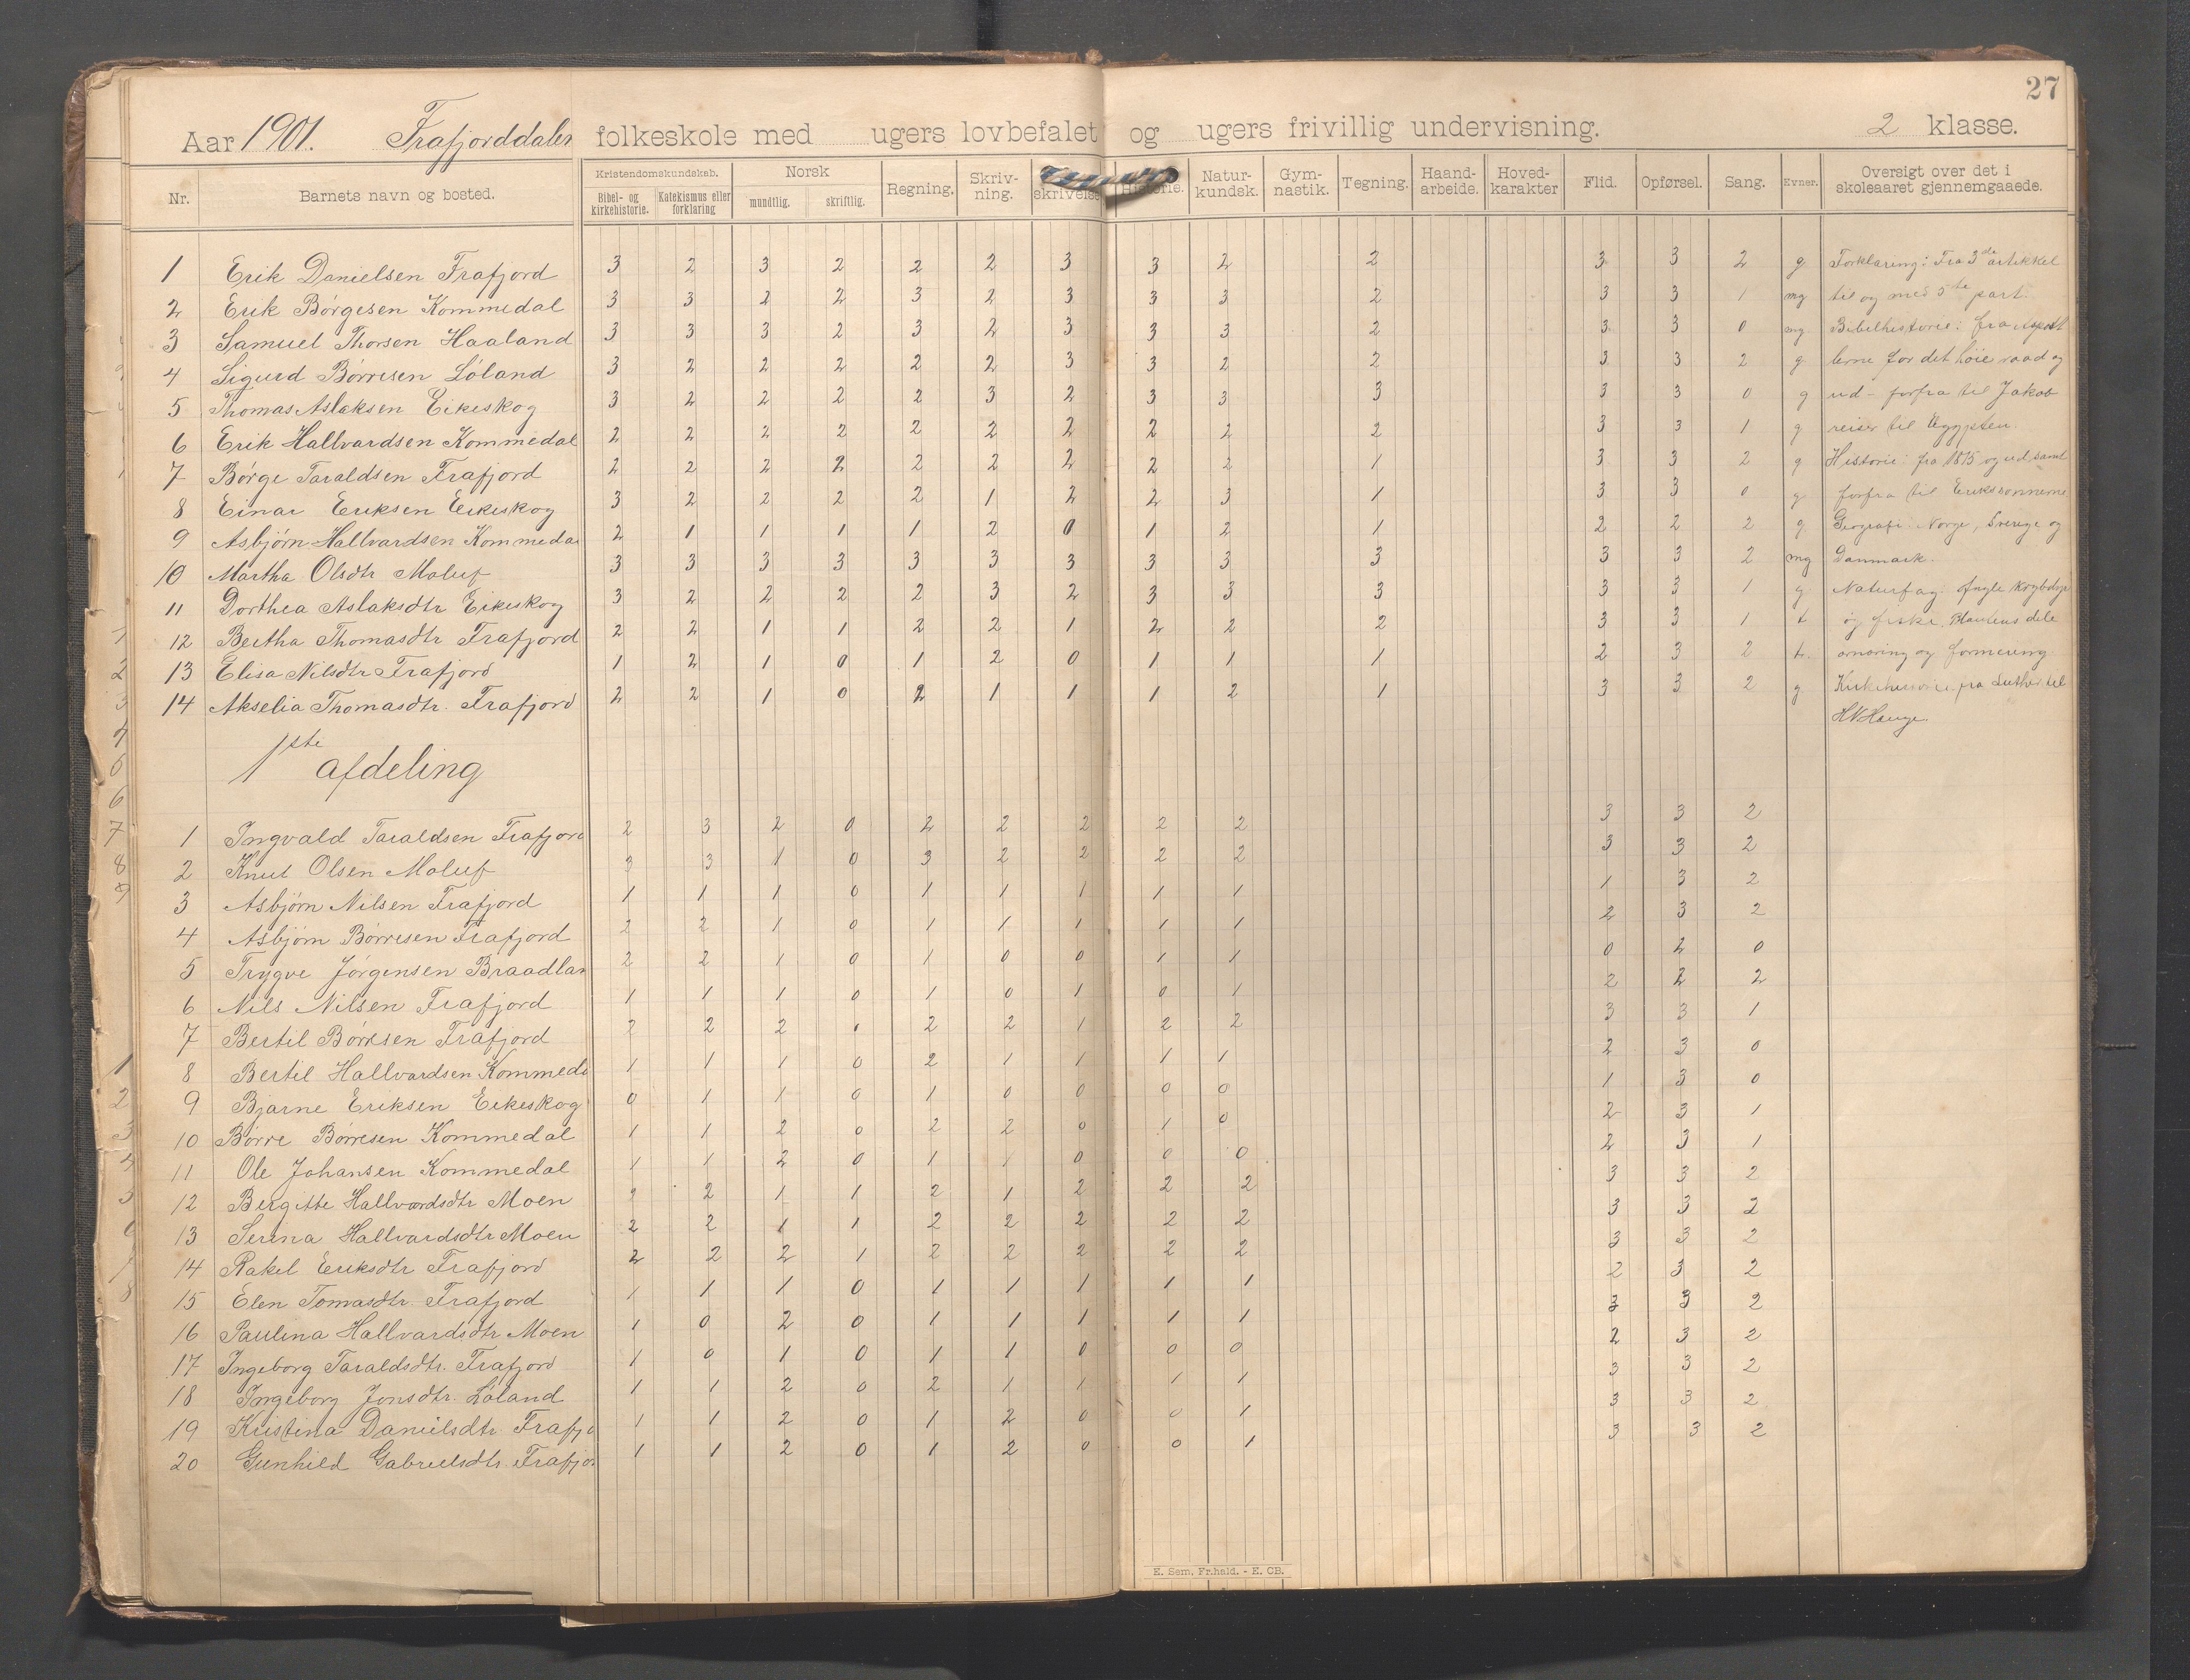 27
Aar 1901. Trafjorddalen folkeskole med ugers lovbefalet og ugers frivillig undervisning. 2 klasse.
Nr. Barnets navn og bosted. Kristendomskundskab. Bibel- og kirkehistorie. Katekismus eller forklaring Norsk mundtlig. skriftlig. Regning. Skriv-ning. skrivelse Historie. Natur-kundsk. Gym-nastik. Tegning. Haand-arbeide. Hoved-karakter Flid. Opførsel. Sang. Evner. Oversigt over det i skoleaaret gjennemgaaede.
1 Erik Danielsen Frafjord 3 2 3 2 2 2 3 3 2 2 3 3 2 g Forklaring: Fra 3die artikkel
2 Erik Børgesen Kommedal 3 3 2 2 3 2 3 3 3 2 3 3 1 mg til og med 5te part.
3 Samuel Thorsen Haaland 3 3 3 2 3 2 3 3 3 2 3 3 0 mg Bibelhistorie: fra Apost
4 Sigurd Børresen Løland 3 2 2 2 2 2 3 3 2 2 3 3 2 g lerne for det høie raad og
5 Thomas Aslaksen Eikeskog 3 2 2 2 2 3 2 3 3 3 3 3 0 g ud - forfra til Jakob
6 Erik Hallvardsen Kommedal 2 2 2 2 2 2 2 2 2 2 3 3 1 g reiser til Egypten.
7 Børge Taraldsen Frafjord 2 2 2 2 2 2 2 2 2 1 3 3 2 g Historie: fra 1815 og ud samt
8 Einar Eriksen Eikeskog 3 2 2 2 2 1 2 2 3 1 3 3 0 g forfra til Erikssønnerne
9 Asbjørn Hallvardsen Kommedal 2 1 1 1 1 2 0 1 2 1 2 2 2 g Geografi: Norge, Sverige og
10 Martha Olsdtr Molaug 3 3 3 3 3 3 3 3 3 3 3 3 2 mg Danmark.
11 Dorthea Aslaksdtr Eikeskog 3 2 2 2 2 3 2 3 3 3 3 3 1 g Naturfag: fugle krybdyr
12 Bertha Thomasdtr Frafjord 2 2 1 1 2 2 1 2 2 2 3 3 1 t og fiske. Plantens dele
13 Elisa Nilsdtr Frafjord 1 2 1 0 1 2 0 1 1 1 2 3 2 t. ernæring og formering.
14 Akselia Thomasdtr. Frafjord 2 2 1 0 2 1 1 1 2 1 3 3 2 g Kirkehistorie fra Luther til
HN Hauge.
1ste afdeling
1 Ingvald Taraldsen Frafjord 2 3 2 0 2 2 2 2 2 3 3 2
2 Knut Olsen Molaug 3 3 1 0 3 2 2 2 2 3 3 2
3 Asbjørn Nilsen Frafjord 1 1 1 0 1 1 1 1 1 1 3 2
4 Asbjørn Børresen Frafjord 2 2 1 0 1 1 1 1 1 2 3 2
5 Trygve Jørgensen Braadlan 2 2 1 0 1 0 0 1 1 0 2 0
6 Nils Nilsen Frafjord 1 1 1 0 1 0 1 0 1 2 2 2
7 Bertil Børresen Frafjord 2 2 2 1 2 2 1 2 2 3 3 1
8 Bertil Hallvardsen Kommeda 1 1 1 0 2 1 1 1 1 2 3 0
9 Bjarne Eriksen Eikeskog 0 1 1 0 1 0 0 0 0 1 3 0
10 Børre Børresen Kommedal 1 1 2 0 2 2 0 1 0 2 3 1
11 Ole Johansen Kommedal 1 1 2 0 1 1 0 0 0 2 3 1
12 Bergitte Hallvardsdtr Moen 2 2 1 1 2 1 2 2 2 3 3 2
13 Serina Hallvardsdtr Moen 2 2 1 1 2 2 2 2 2 3 3 2
14 Rakel Eriksdtr Frafjord 2 2 2 1 2 2 2 2 2 3 3 2
15 Elen Tomasdtr. Frafjord 1 1 1 0 1 1 1 1 1 2 3 2
16 Paulina Hallvardsdtr Moen 1 0 2 0 1 1 1 1 1 3 3 2
17 Ingeborg Taraldsdtr. Frafjord 1 0 1 0 1 1 0 0 0 2 3 2
18 Ingeborg Jonsdtr. Løland 1 1 2 0 2 1 1 1 1 3 3 2
19 Kristina Danielsdtr Frafjo 1 1 2 0 1 2 0 0 1 3 3 2
20 Gunhild Gabrielsdtr Frafjor 1 1 2 0 1 2 0 0 1 3 3 2
E. Sem, Fr.hald. - E. CB.